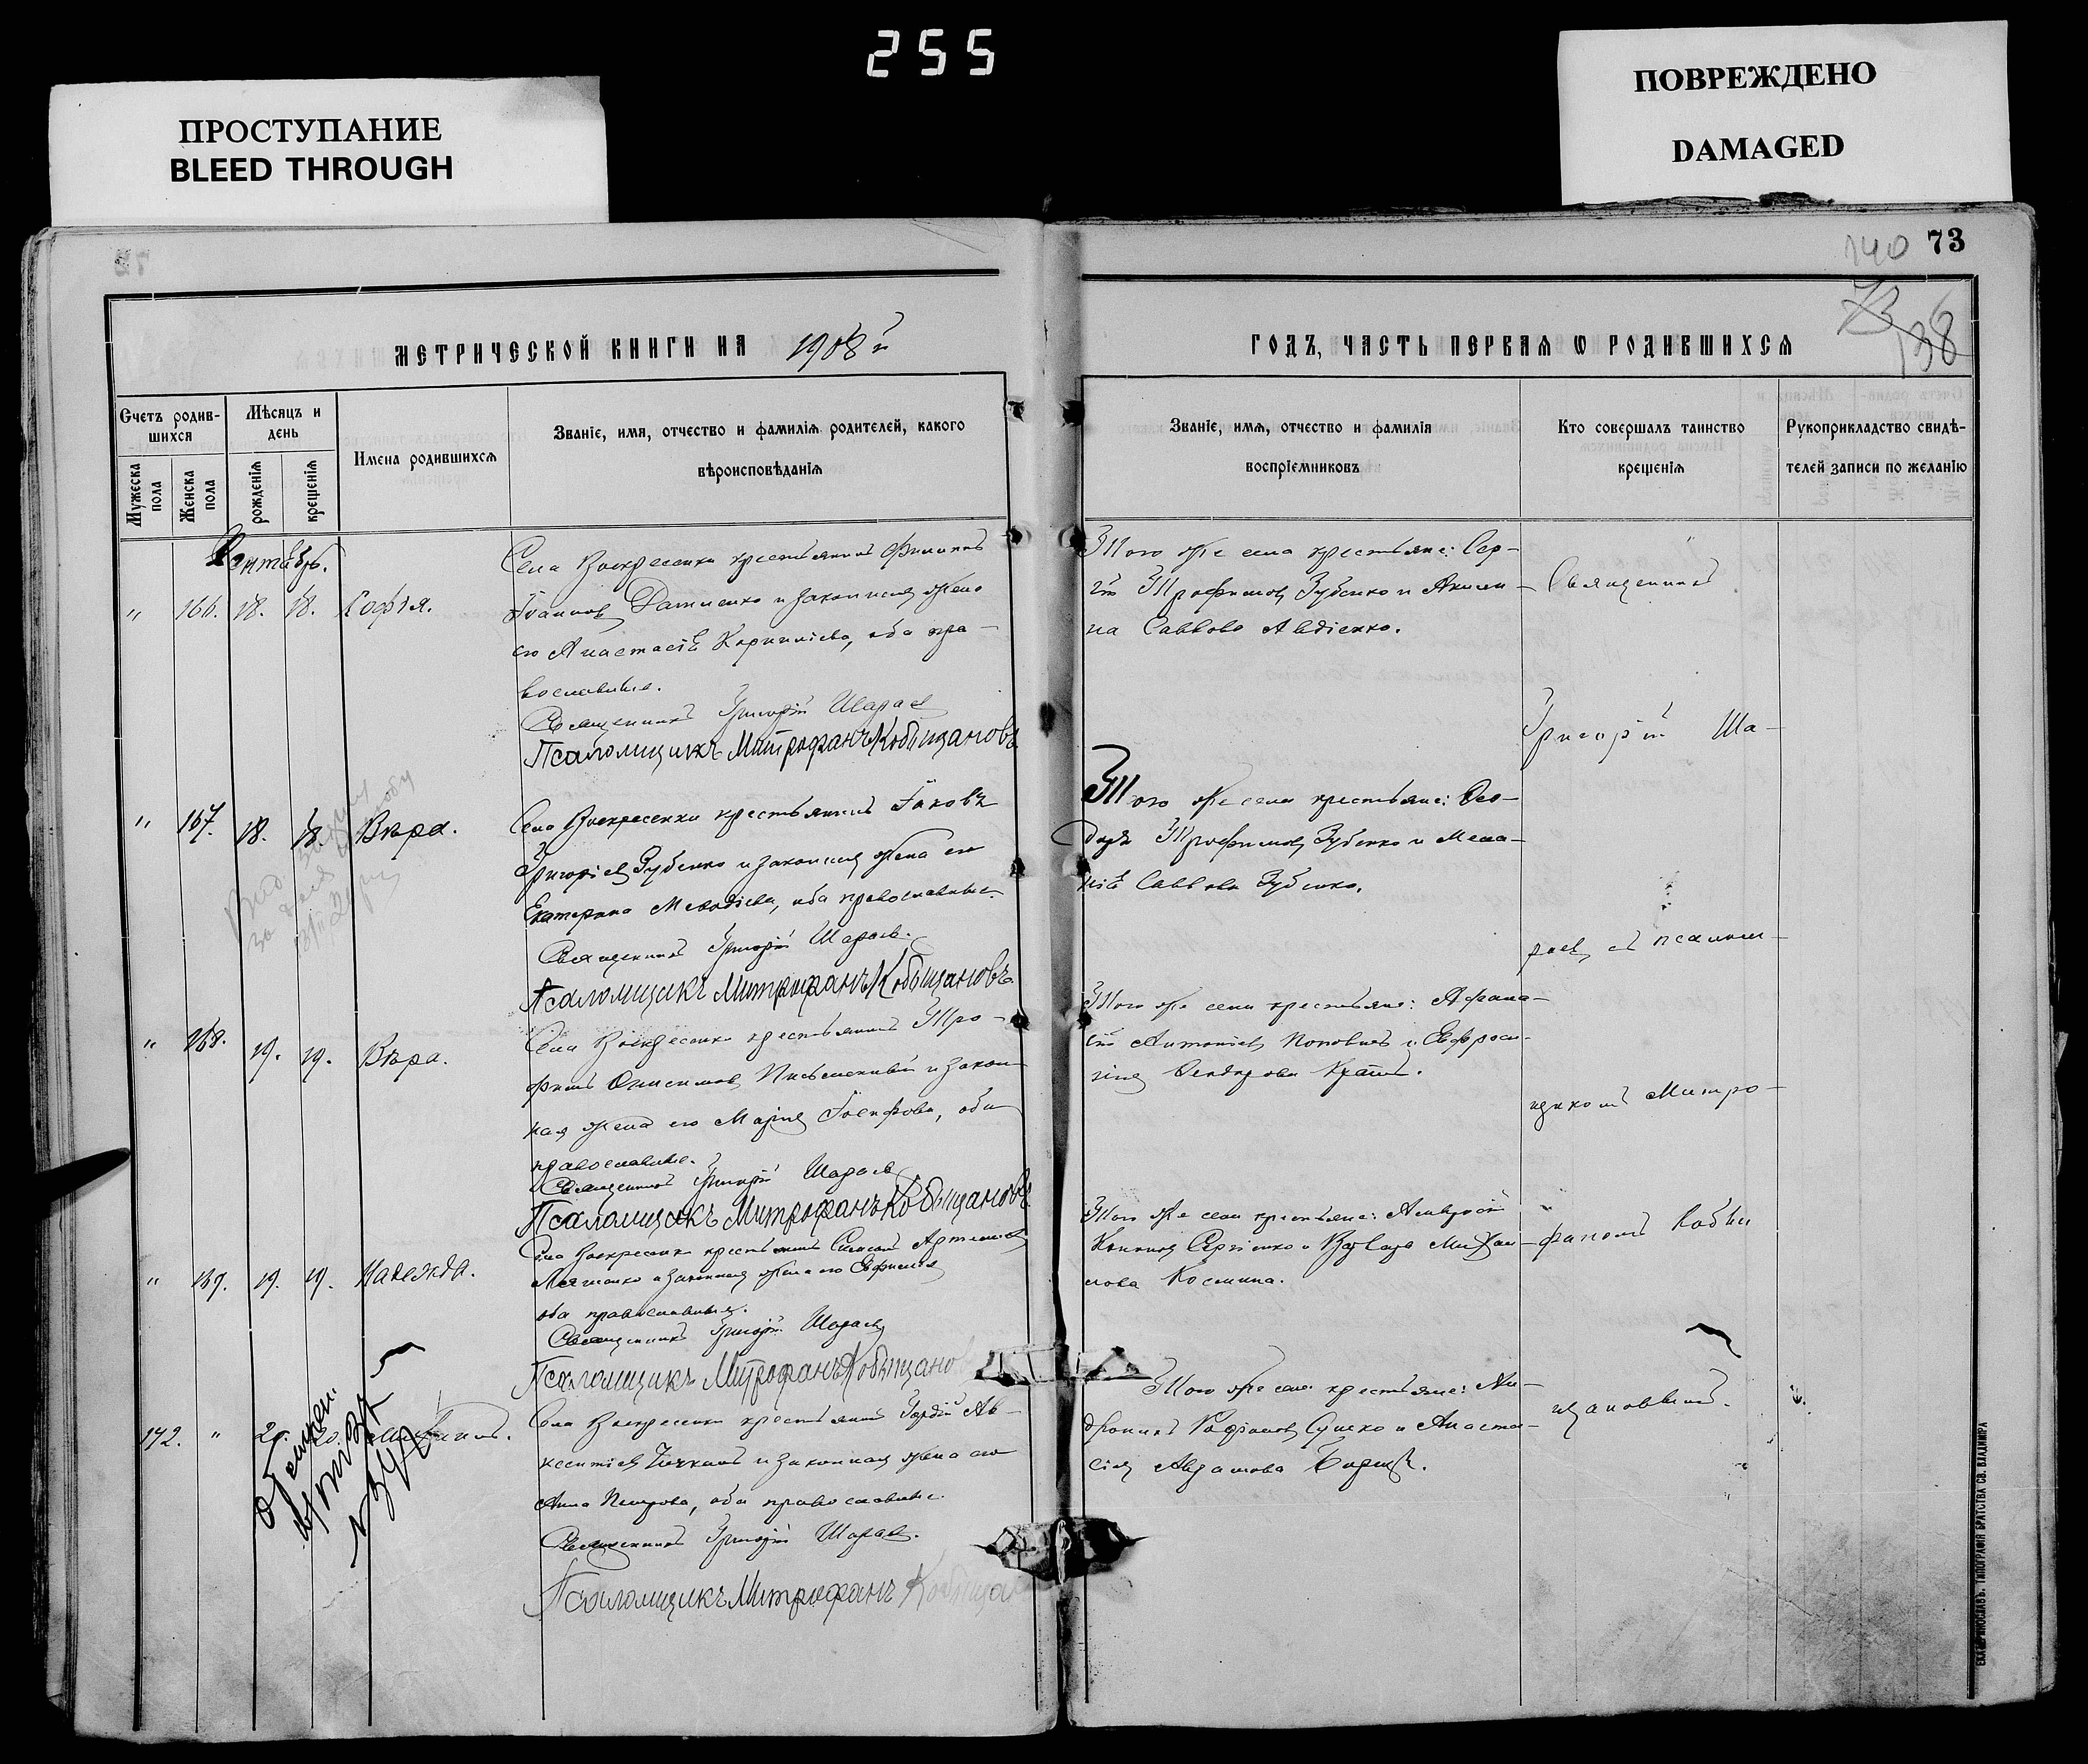 255
ПРОСТУПАНИЕ
BLEED THROUGH
ПОВРЕЖДЕНО
DAMAGED
140 73
73 138
МЕТРИЧЕСКОЙ КНИГИ НА 1908 й
ГОДЪ, ЧАСТЬ ПЕРВАЯ Ѡ РОДИВШИХСЯ
Счетъ родив-
шихся
Мужеска пола
Женска пола
Мѣсяцъ и
день
рожденія
крещенія
Имена родившихся
Званіе, имя, отчество и фамилія родителей, какого
вѣроисповѣданія
Званіе, имя, отчество и фамилія
воспріемниковъ
Кто совершалъ таинство
крещенія
Рукоприкладство свидѣ-
телей записи по желанію
Сентябрь.
" 166. 18. 18. Софія.
Села Воскресенки крестьянинъ Филиппъ
Іоанновъ и законная жена
его Анастасія Корниліева, оба пра-
вославные.
Священникъ Григорій Шараевъ
Псаломщикъ Митрофанъ Кобыщановъ
Того же села крестьяне: Сер-
гій Трофимовъ Зубенко и Акили-
на Саввова Авдіенко.
" 167. 18. 18. Вѣра.
Села Воскресенки крестьянинъ Іаковъ
Григоріевъ Зубенко и законная жена его
Екатерина Меѳодіева, оба православные.
Священникъ Григорій Шараевъ.
Псаломщикъ Митрофанъ Кобыщановъ.
Того же села крестьяне: Ѳео-
доръ Трофимовъ Зубенко и Мела-
нія Саввова Зубенко.
" 168. 19. 19. Вѣра.
Села Воскресенки крестьянинъ Тро-
фимъ Онисимовъ Письменный и закон-
ная жена его Марія Іосифова, оба
православные.
Священникъ Григорій Шараевъ
Псаломщикъ Митрофанъ Кобыщановъ
Того же села крестьяне: Афана-
сій Антоніевъ Поповичъ и Евфроси-
нія Ѳеодорова
" 169. 19. 19. Надежда.
Села Воскресенки крестьянинъ Симеонъ Артемовъ
и законная жена его Евфимія
оба православные.
Священникъ Григорій Шараевъ
Псаломщикъ Митрофанъ Кобыщанов
Того же села крестьяне: Амвросій
Сергіенко и Варвара Михаи-
лова Космина.
172. " 20. 20.
Села Воскресенки крестьянинъ Гордій Ав-
ксентіевъ и законная жена его
Анна Петрова, оба православные.
Священникъ Григорій Шараевъ.
Псаломщикъ Митрофанъ Кобыща
Того же села крестьяне: Ан-
дроникъ Сушко и Анаста-
сія Авраамова
Священникъ
Григорій Ша-
раевъ съ псалом-
щикомъ Митро-
фаномъ Кобы
щановымъ.
ЕКАТЕРИНОСЛАВЪ. ТИПОГРАФІЯ БРАТСТВА СВ. ВЛАДИМІРА